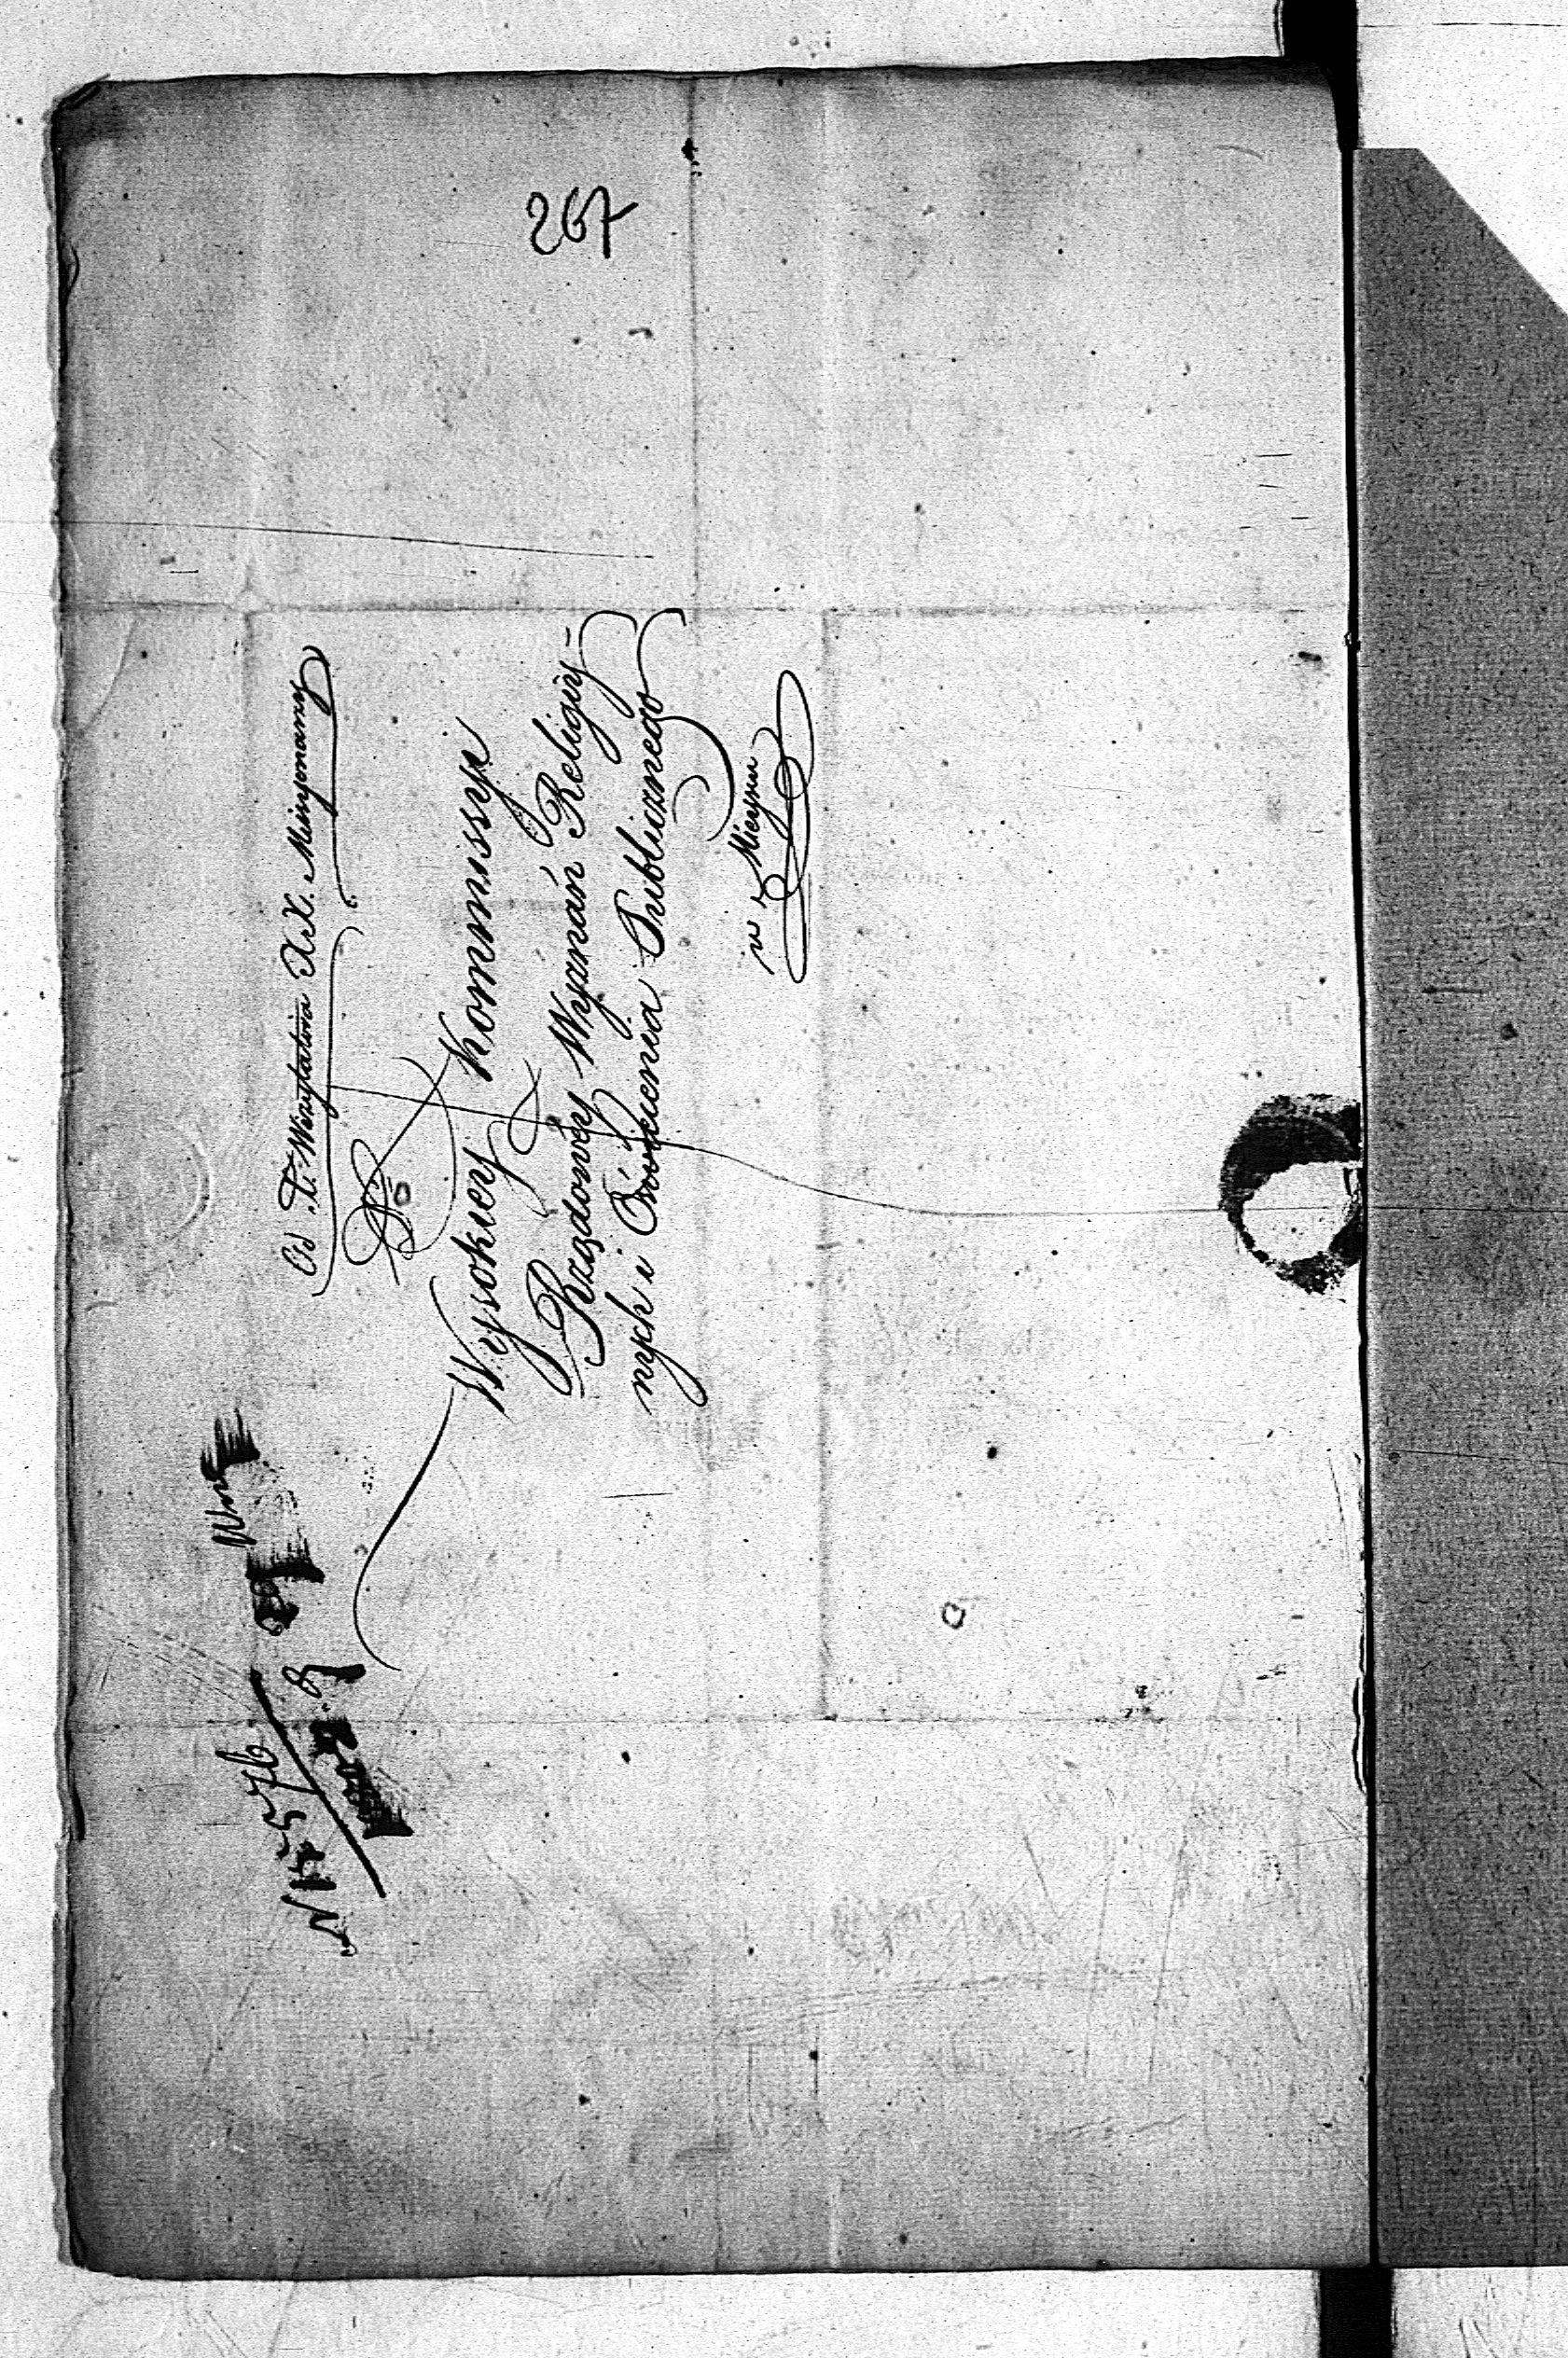 267
Od X. Wizytatora XX. Missyonarzy
Do
Wysokiey Kommissyi
Rządowey Wyznań Religiy=
nych i Oświecenia Publicznego
w Mieyscu
N 576